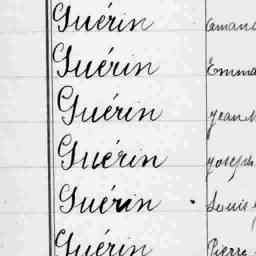 Guérin Amand
Guérin Emma
Guérin Jean M
Guérin Joseph
Guérin Louis
Guérin Pierre